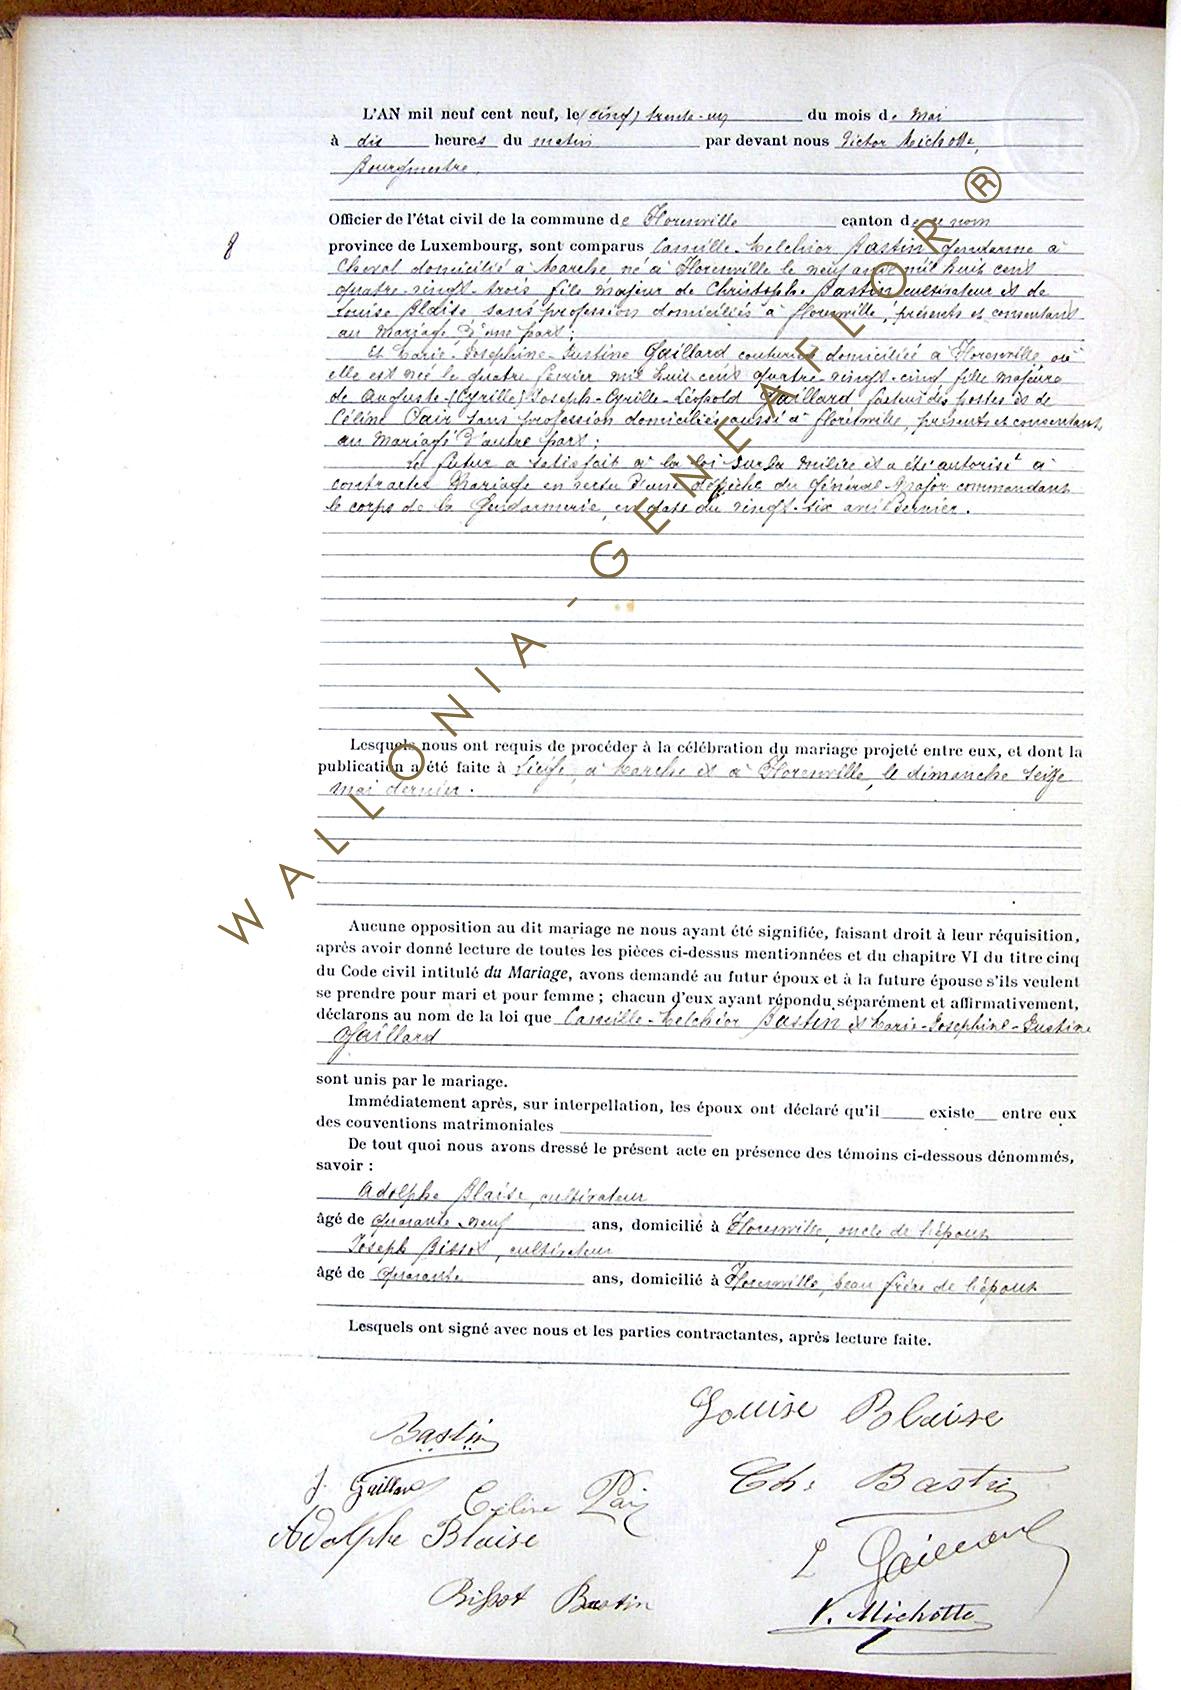 L'AN mil neuf cent neuf, le (cinq) trente-un du mois de Mai
à dix heures du matin par devant nous Victor Michotte,
Bourgmestre,
Officier de l'état civil de la commune de Florenville canton de ce nom
8
province de Luxembourg, sont comparus Camille-Melchior Bastin Gendarme à
Cheval domicilié à Marche né à Florenville le neuf août mil huit cent
quatre-vingt-trois fils majeur de Christophe Bastin cultivateur et de
Louise Blaise sans profession domiciliés à Florenville, présents et consentant
au Mariage, d'une part;
Et Marie-Josephine-Justine Gaillard couturière domiciliée à Florenville où
elle est née le quatre février mil huit cent quatre-vingt-cinq fille majeure
de Auguste-(Cyrille) Joseph-Cyrille-Léopold Gaillard facteur des postes et de
Céline sans profession domiciliés aussi à Florenville, présents et consentant
au Mariage d'autre part;
Le futur a satisfait à la loi sur la milice et a été autorisé à
contracter Mariage en vertu d'une dépêche du Général-Major commandant
le corps de la Gendarmerie, en date du vingt-six avril dernier.
Lesquels nous ont requis de procéder à la célébration du mariage projeté entre eux, et dont la
publication a été faite à à Marche et à Florenville, le dimanche seize
mai dernier.
Aucune opposition au dit mariage ne nous ayant été signifiée, faisant droit à leur réquisition,
après avoir donné lecture de toutes les pièces ci-dessus mentionnées et du chapitre VI du titre cinq
du Code civil intitulé du Mariage, avons demandé au futur époux et à la future épouse s'ils veulent
se prendre pour mari et pour femme ; chacun d'eux ayant répondu séparément et affirmativement,
déclarons au nom de la loi que Camille-Melchior Bastin et Marie-Josephine-Justine
Gaillard
sont unis par le mariage.
Immédiatement après, sur interpellation, les époux ont déclaré qu'il existe entre eux
des conventions matrimoniales
De tout quoi nous avons dressé le présent acte en présence des témoins ci-dessous dénommés,
savoir :
Adolphe Blaise, cultivateur
âgé de quarante-neuf ans, domicilié à Florenville, oncle de l'époux
Joseph Bissot, cultivateur
âgé de quarante ans, domicilié à Florenville, beau frère de l'époux
Lesquels ont signé avec nous et les parties contractantes, après lecture faite.
Louise Blaise
Bastin
J. Gaillard
Céline
Ch. Bastin
Adolphe Blaise
L Gaillard
Bissot Bastin
V. Michotte
WALLONIA - GENEAFLOR ®